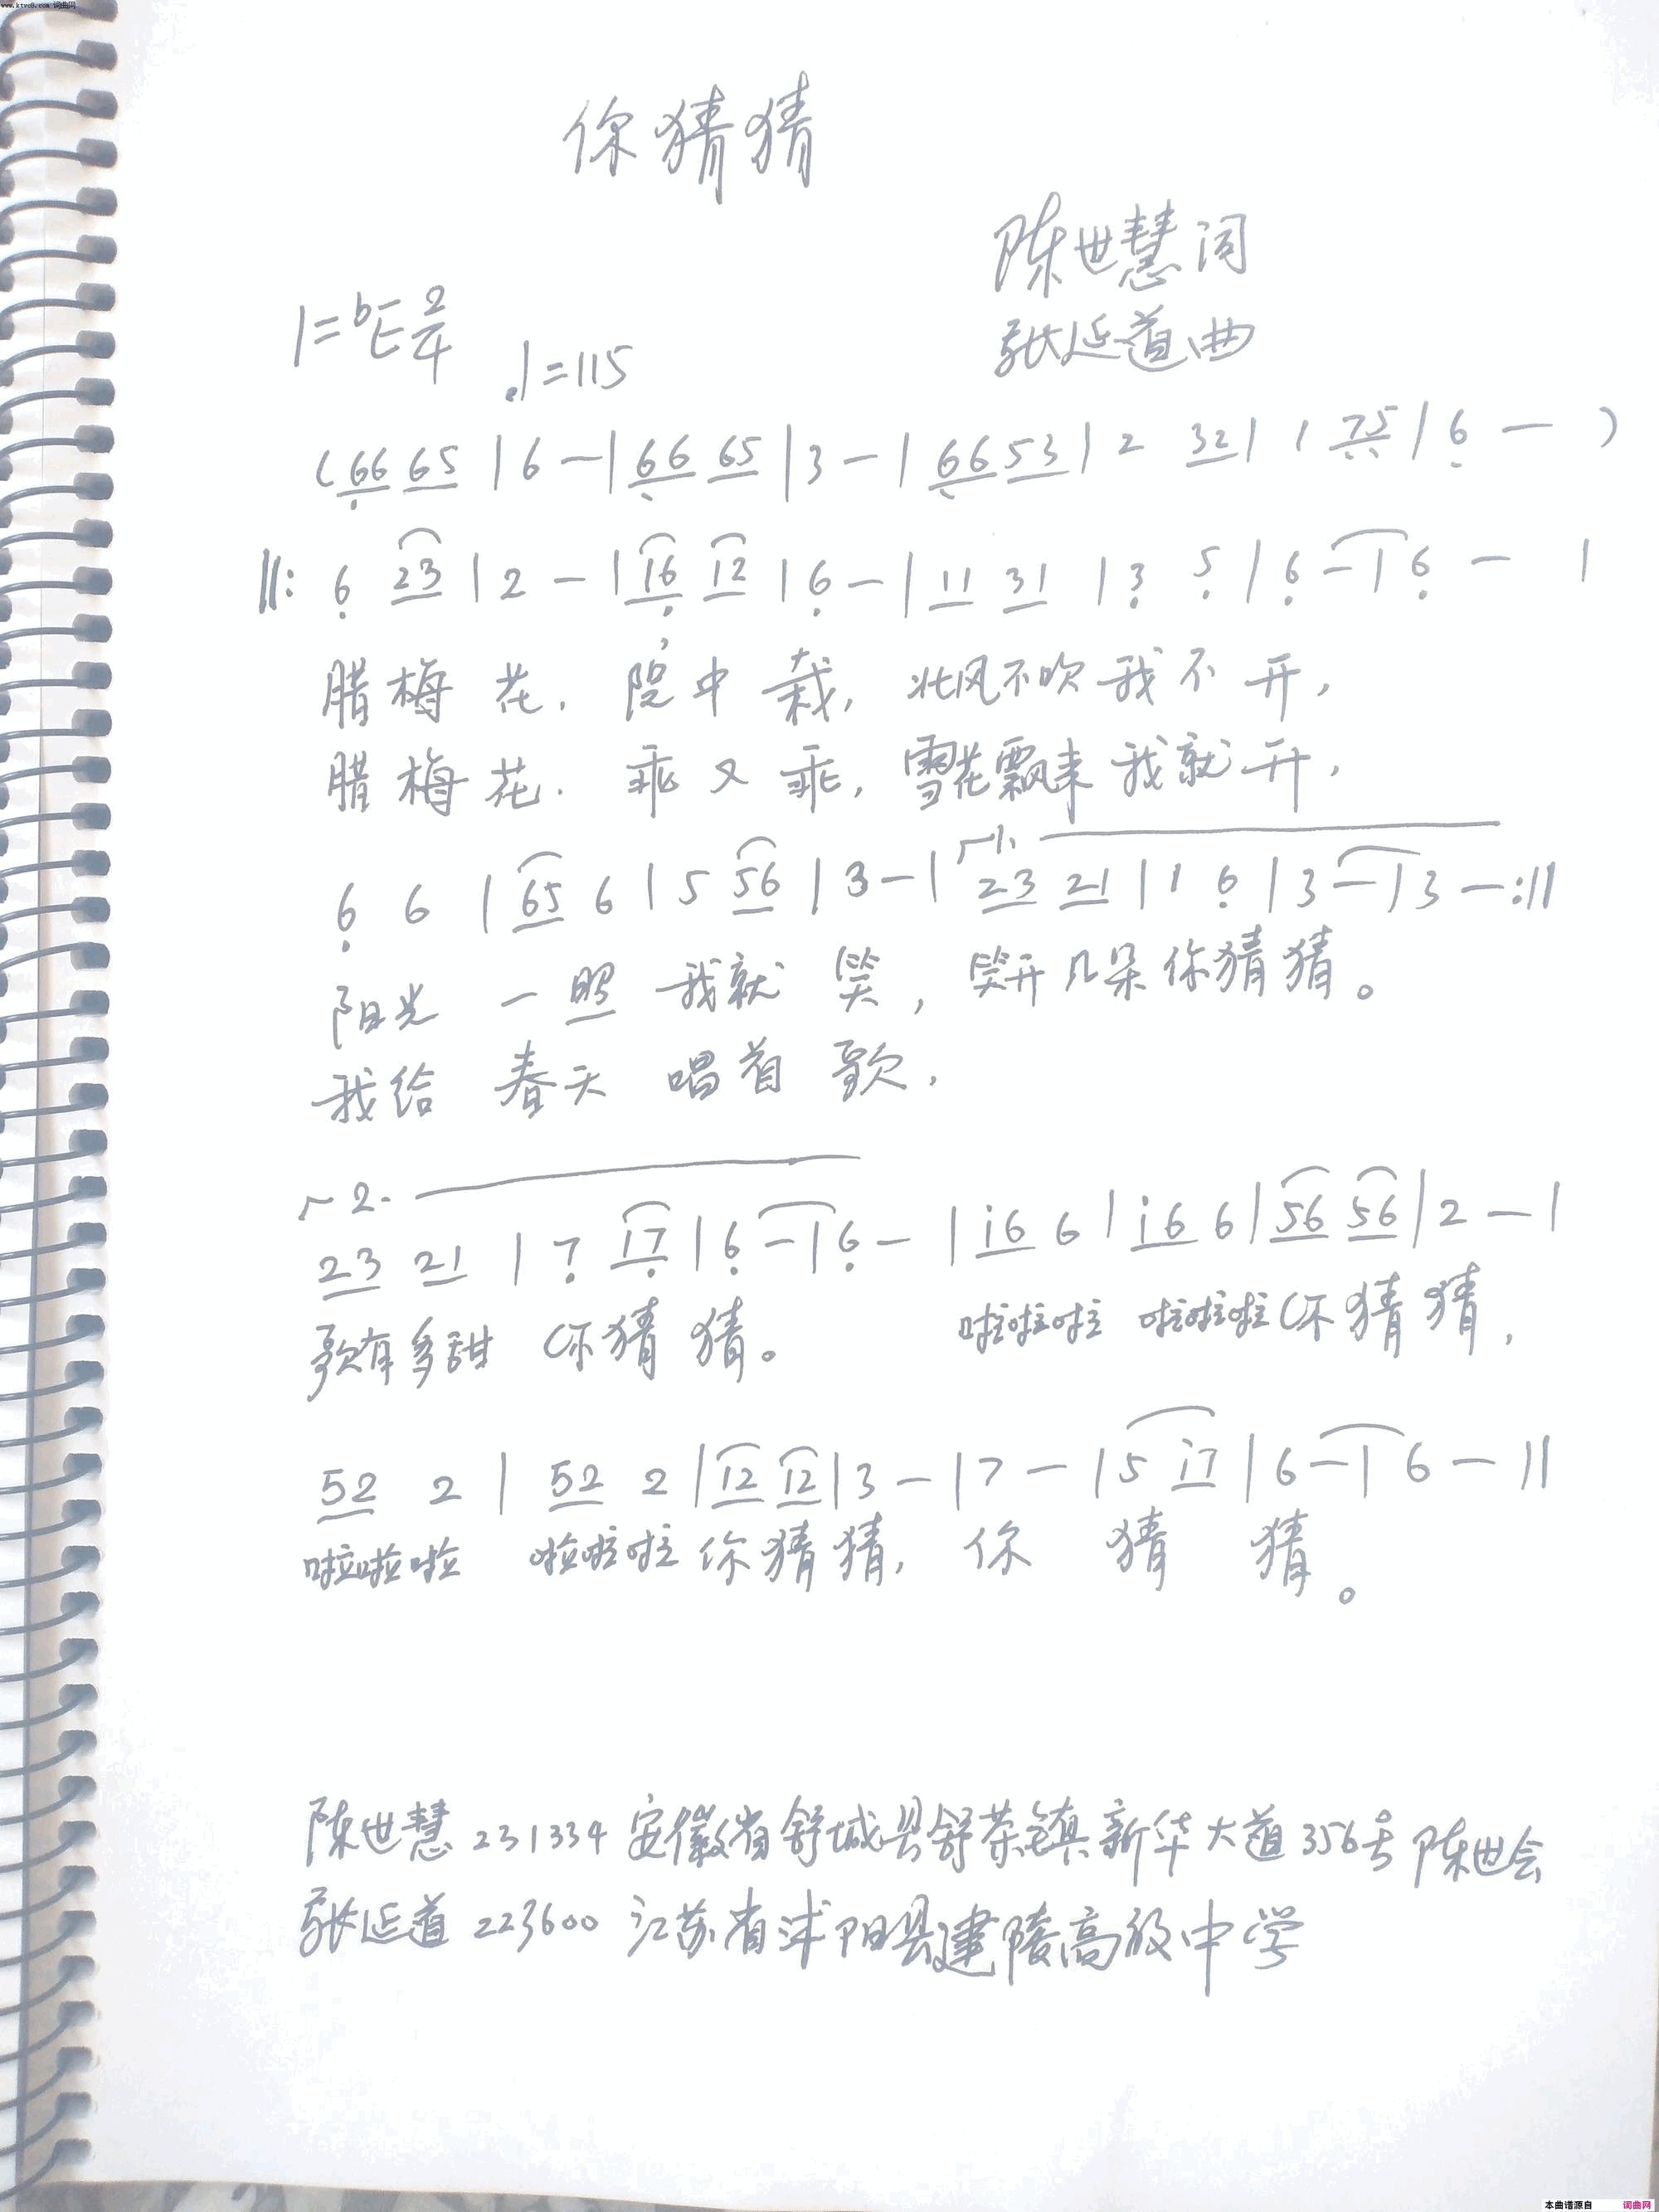 www.ktvo8.com 词曲网
你猜猜
陈世慧词
1=bE 2/4
♩=115
张延道曲
(66 65 | 6 — | 66 65 | 3 — | 66 53 | 2 32 | 1 75 | 6 — )
||: 6 23 | 2 — | 16 12 | 6 — | 11 31 | 3 5 | 6 — | 6 — |
腊梅花, 院中栽, 北风不吹我不开,
腊梅花, 乖又乖, 雪花飘来我就开,
6 6 | 65 6 | 5 56 | 3 — | 1. 23 21 | 1 6 | 3 — | 3 — :||
阳光一照我就笑, 笑开几朵你猜猜。
我给春天唱首歌,
2. 23 21 | 7 17 | 6 — | 6 — | i6 6 | i6 6 | 56 56 | 2 — |
歌有多甜你猜猜。 啦啦啦 啦啦啦你猜猜,
52 2 | 52 2 | 12 12 | 3 — | 7 — | 5 i7 | 6 — | 6 — ||
啦啦啦 啦啦啦你猜猜, 你猜猜。
陈世慧 231334 安徽省舒城县舒茶镇新华大道356号 陈世会
张延道 223600 江苏省沭阳县建陵高级中学
本曲谱源自 词曲网